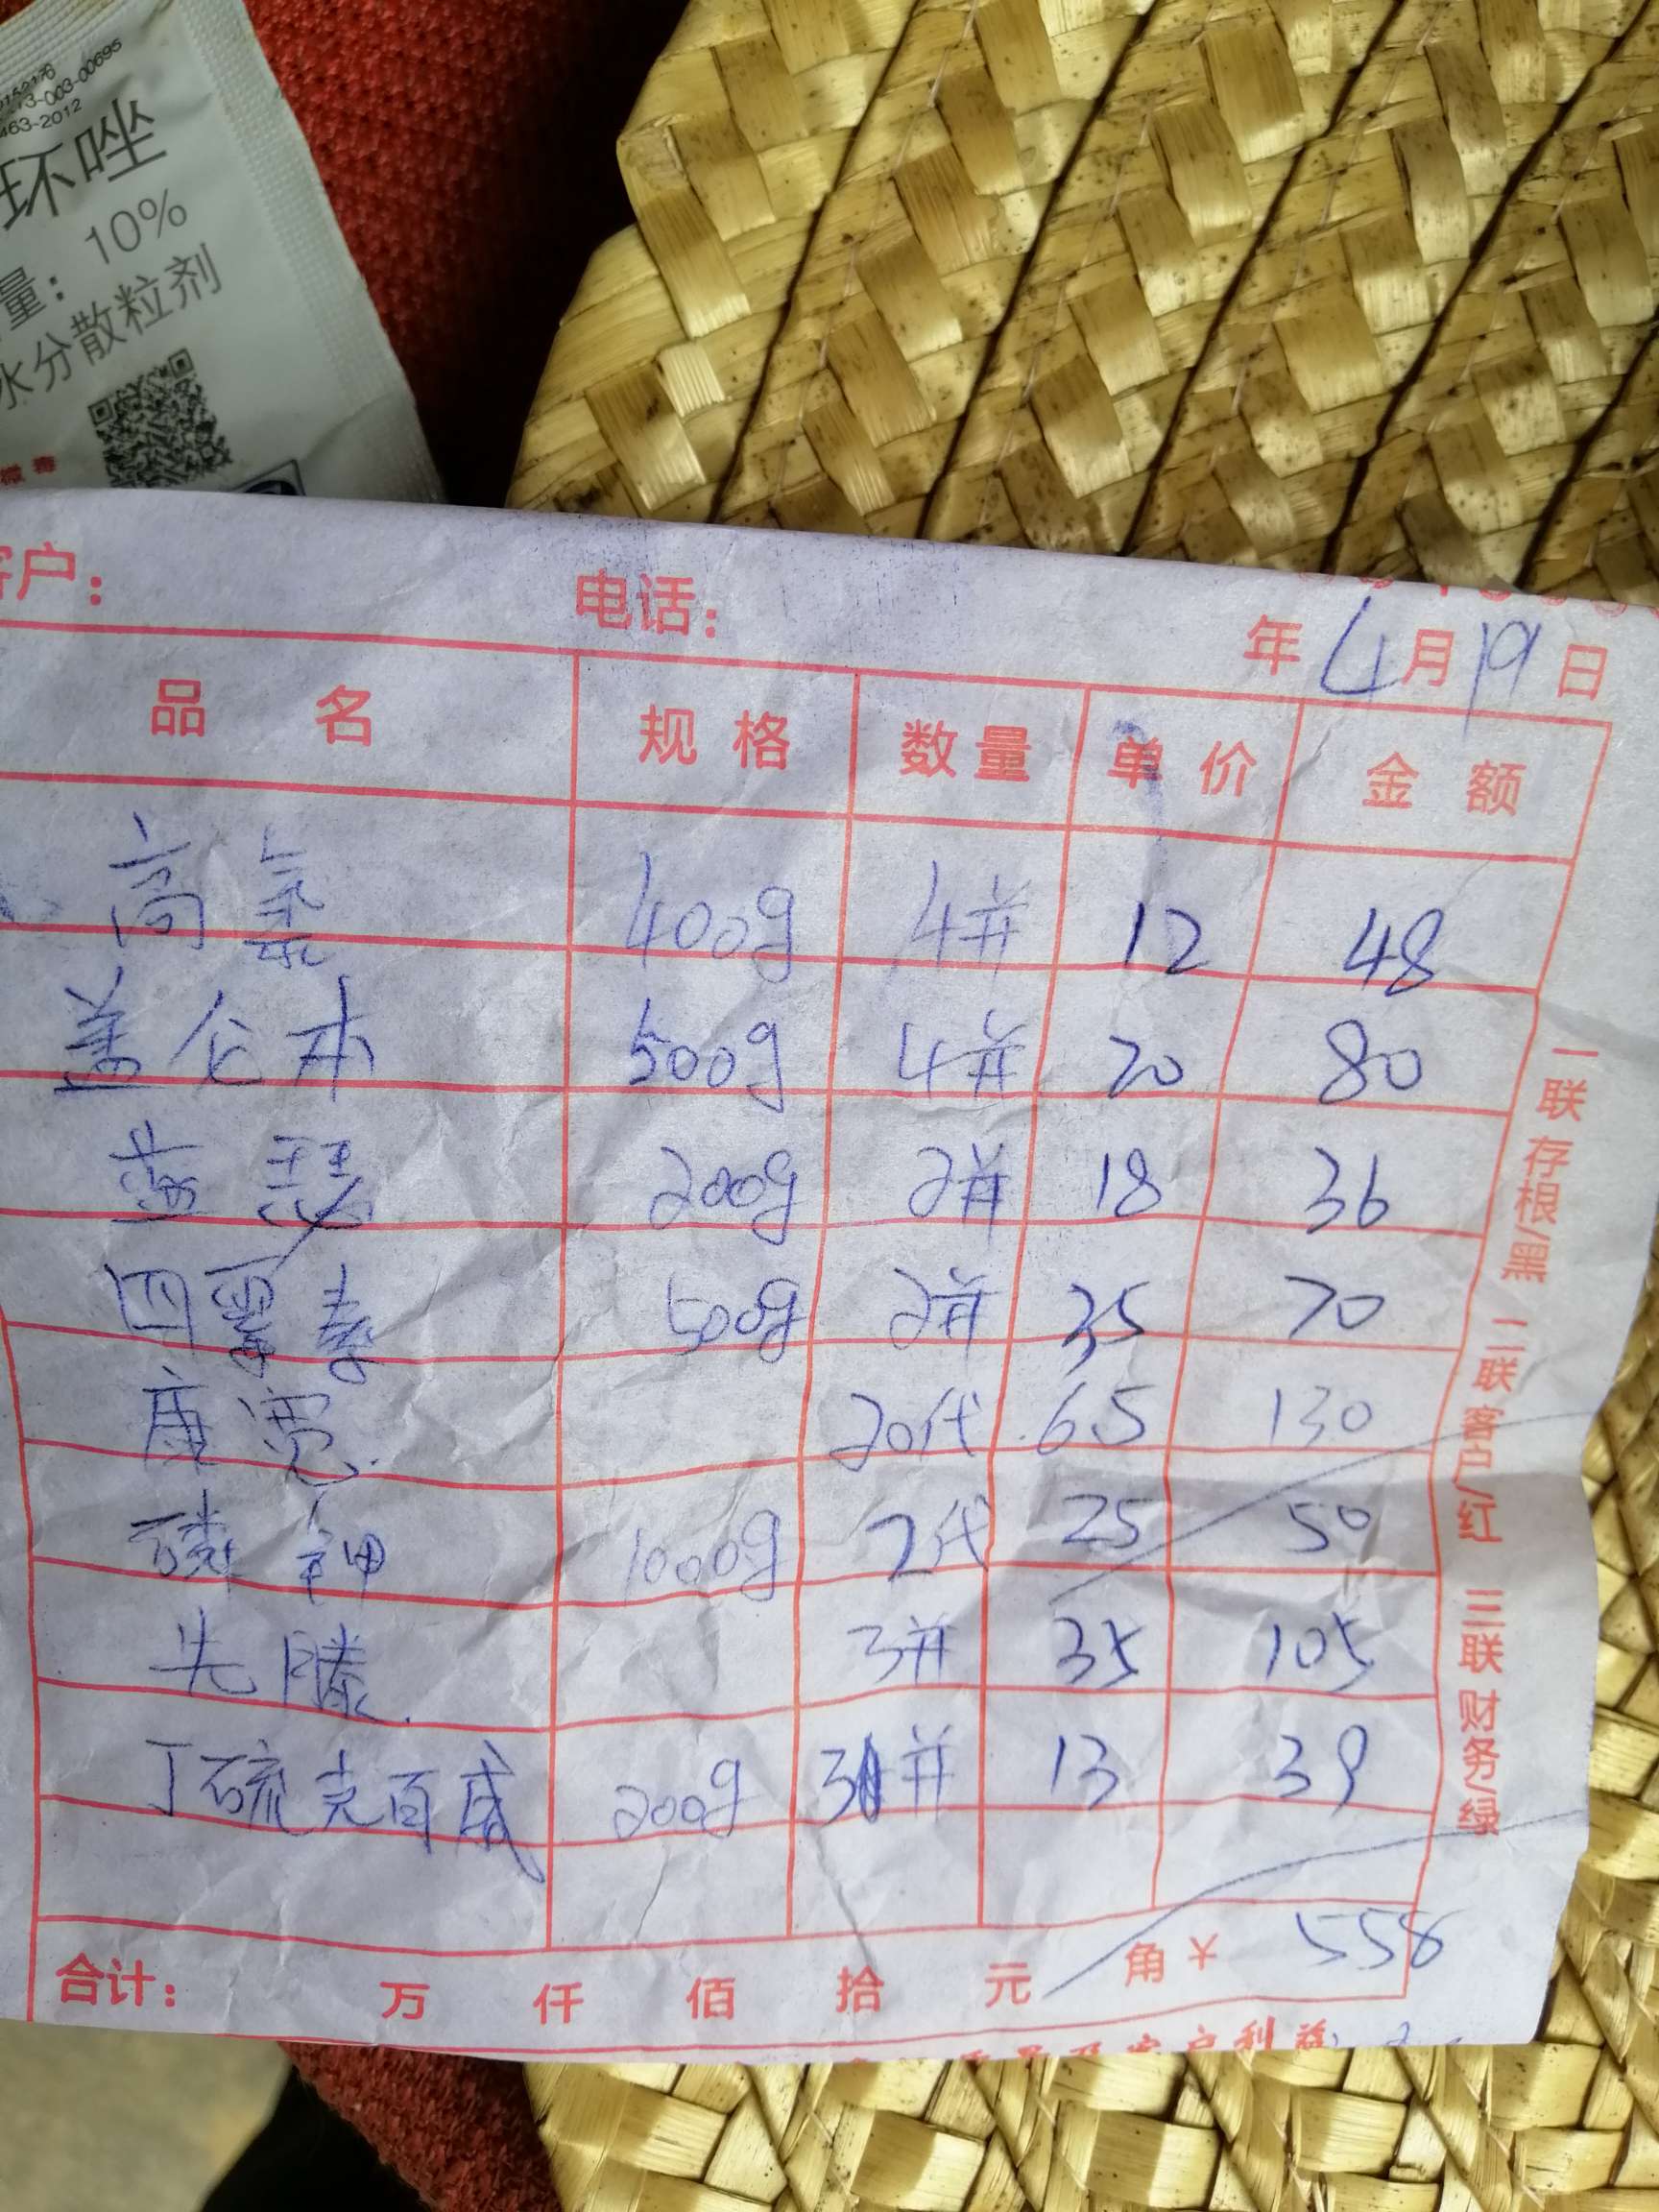 463-2012
环唑
量：10%
水分散粒剂
户： 电话： 年 4月 19日
品名 规格 数量 单价 金额
高氯 400g 4并 12 48
盖仑本 500g 4并 20 80
蓝瑟 200g 2并 18 36
四霉素 500g 2并 35 70
康宽 20代 6.5 130
磷钾 1000g 2代 25 50
先滕 3并 35 105
丁硫克百威 200g 3并 13 39
合计： 万 仟 佰 拾 元 角 ¥ 558
一联存根/黑 二联客户/红 三联财务/绿